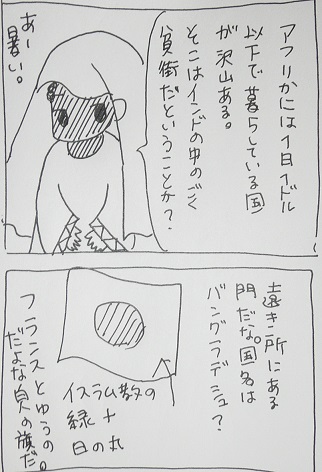 アフリかには1日1ドル
以下で暮らしている国
が沢山ある。
そこはインドの中のごく
貧街だということか?
あー
暑い。
遠き所にある
門だな。国名は
バングラデシュ?
イスラム数の
緑+
日の丸
フランスとゆうの。
だよな貝の旗だ。